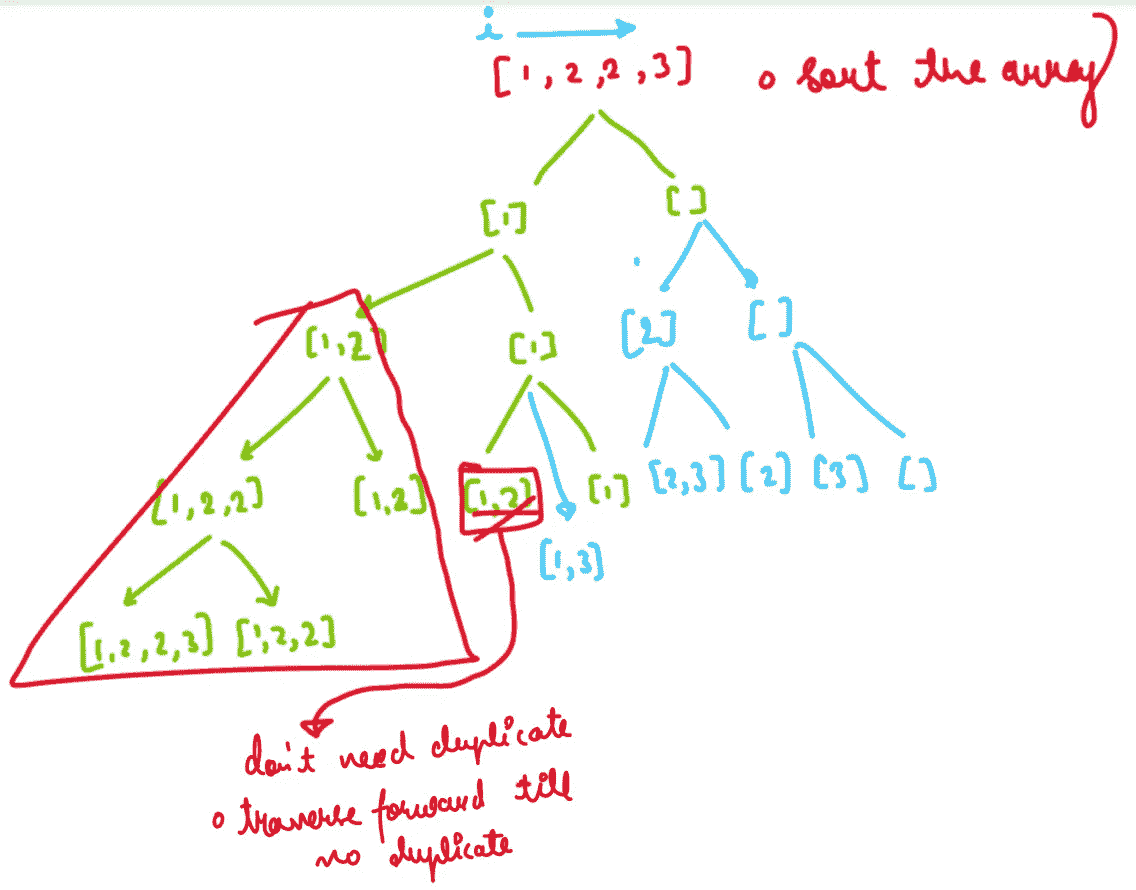 i
[1,2,2,3] o sort the array
[1] []
[1,2] [1] [2] []
[1,2,2] [1,2] [1,2] [1] [2,3] [2] [3] []
[1,3]
[1,2,2,3] [1,2,2]
don't need duplicate
o traverse forward till
no duplicate